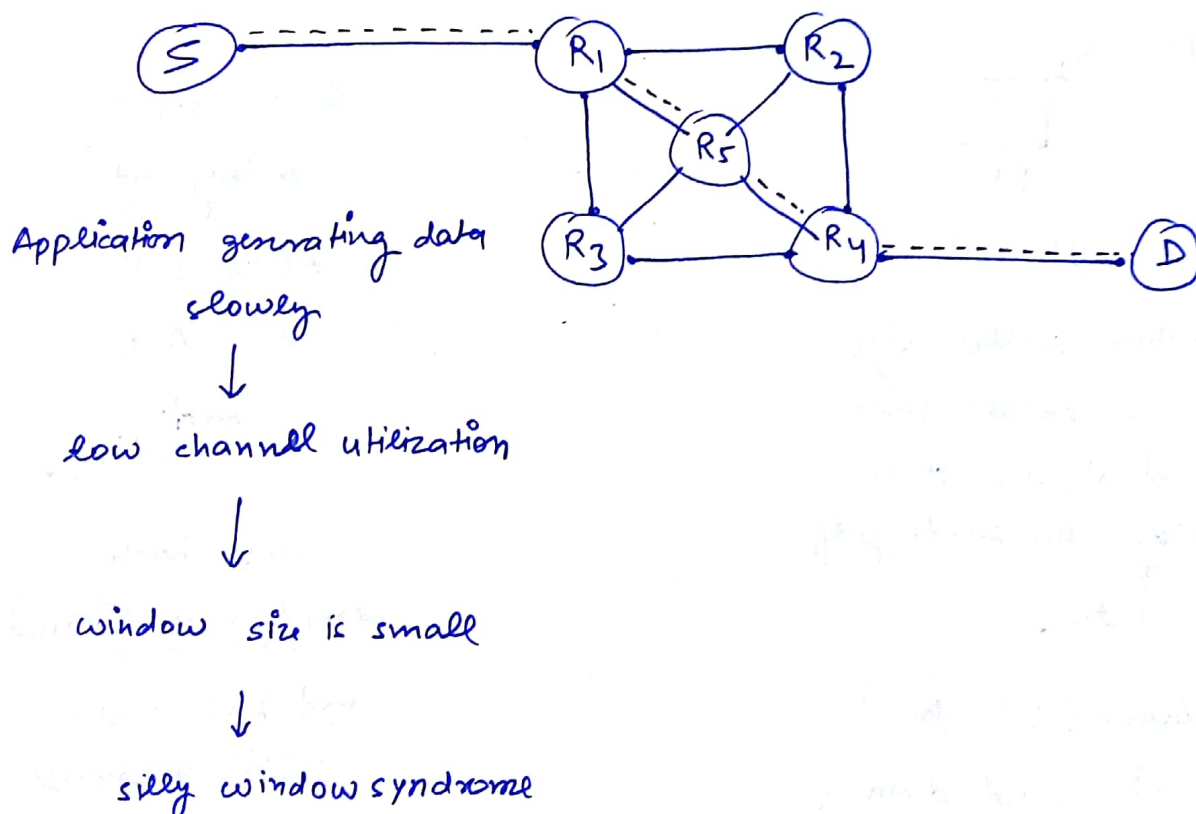 S
R1
R2
R5
R3
R4
D
Application generating data
slowly
low channel utilization
window size is small
silly window syndrome